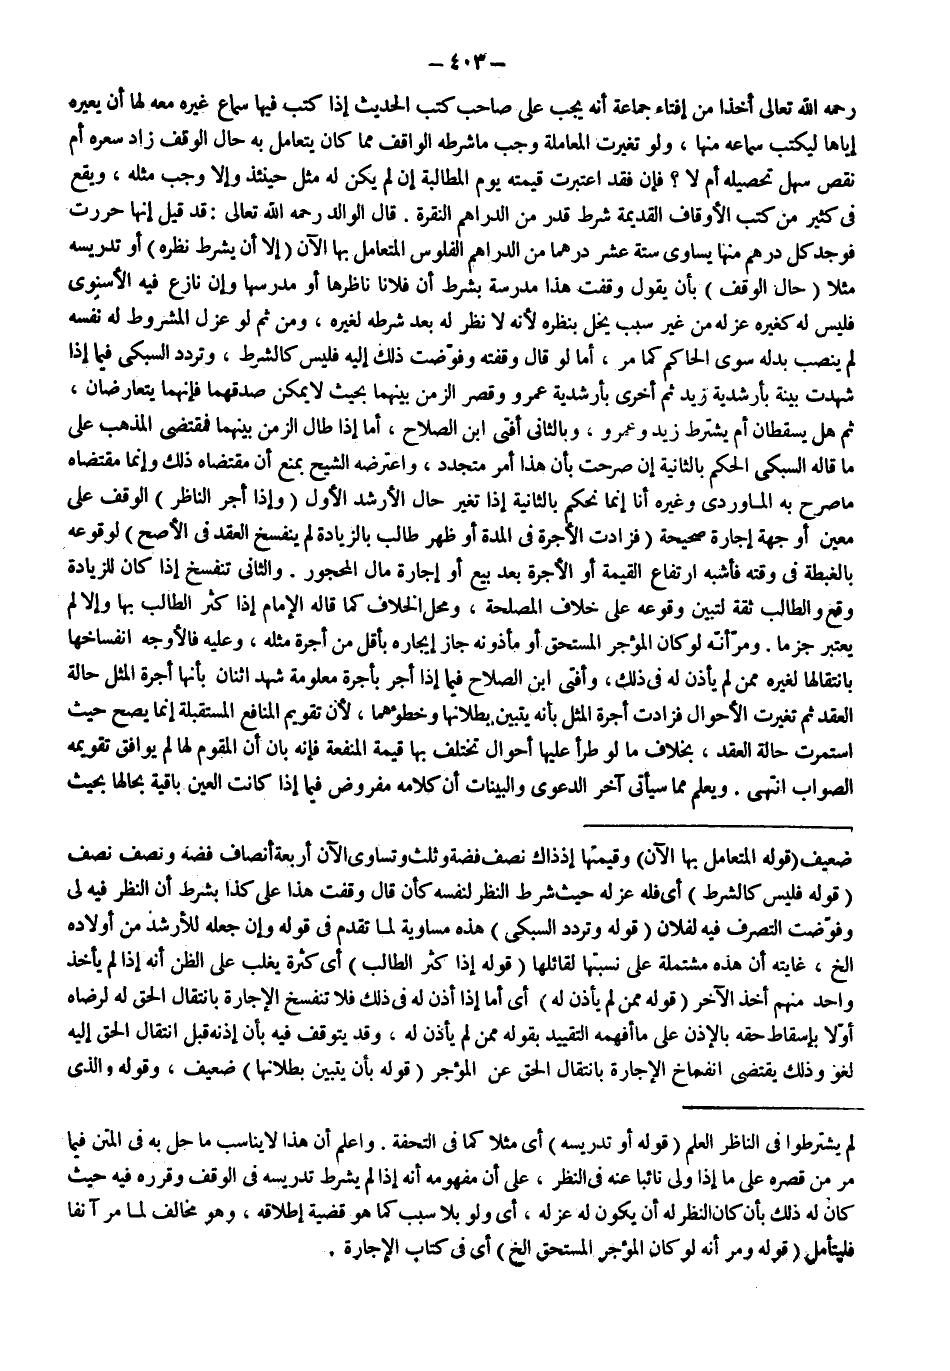 – ٤٠٣ –
رحمه الله تعالى أخذا من إفتاء جماعة أنه يجب على صاحب كتب الحديث إذا كتب فيها سماع غيره معه لها أن يعيره
إياها ليكتب سماعه منها ، ولو تغيرت المعاملة وجب ماشرطه الواقف مما كان يتعامل به حال الوقف زاد سعره أم
نقص سهل تحصيله أم لا ؟ فإن فقد اعتبرت قيمته يوم المطالبة إن لم يكن له مثل حينئذ وإلا وجب مثله ، ويقع
فى كثير من كتب الأوقاف القديمة شرط قدر من الدراهم النقرة . قال الوالد رحمه الله تعالى : قد قيل إنها حررت
فوجد كل درهم منها يساوى ستة عشر درهما من الدراهم الفلوس المتعامل بها الآن ( إلا أن يشرط نظره ) أو تدريسه
مثلا ( حال الوقف ) بأن يقول وقفت هذا مدرسة بشرط أن فلانا ناظرها أو مدرسها وإن نازع فيه الأسنوى
فليس له كغيره عزله من غير سبب يخل بنظره لأنه لا نظر له بعد شرطه لغيره ، ومن ثم لو عزل المشروط له نفسه
لم ينصب بدله سوى الحاكم كما مر ، أما لو قال وقفته وفوّضت ذلك إليه فليس كالشرط ، وتردد السبكى فيما إذا
شهدت بينة بأرشدية زيد ثم أخرى بأرشدية عمرو وقصر الزمن بينهما بحيث لايمكن صدقهما فإنهما يتعارضان ،
ثم هل يسقطان أم يشترط زيد وعمرو ، وبالثانى أفتى ابن الصلاح ، أما إذا طال الزمن بينهما فمقتضى المذهب على
ما قاله السبكى الحكم بالثانية إن صرحت بأن هذا أمر متجدد ، واعترضه الشيخ بمنع أن مقتضاه ذلك وإنما مقتضاه
ماصرح به الماوردى وغيره أنا إنما نحكم بالثانية إذا تغير حال الأرشد الأول ( وإذا أجر الناظر ) الوقف على
معين أو جهة إجارة صحيحة ( فزادت الأجرة فى المدة أو ظهر طالب بالزيادة لم ينفسخ العقد فى الأصح ) لوقوعه
بالغبطة فى وقته فأشبه ارتفاع القيمة أو الأجرة بعد بيع أو إجارة مال المحجور . والثانى تنفسخ إذا كان للزيادة
وقع والطالب ثقة لتبين وقوعه على خلاف المصلحة ، ومحل الخلاف كما قاله الإمام إذا كثر الطالب بها وإلا لم
يعتبر جزما . ومرّ أنه لو كان المؤجر المستحق أو مأذونه جاز إيجاره بأقل من أجرة مثله ، وعليه فالأوجه انفساخها
بانتقالها لغيره ممن لم يأذن له فى ذلك ، وأفتى ابن الصلاح فيما إذا أجر بأجرة معلومة شهد اثنان بأنها أجرة المثل حالة
العقد ثم تغيرت الأحوال فزادت أجرة المثل بأنه يتبين بطلانها وخطؤهما ، لأن تقويم المنافع المستقبلة إنما يصح حيث
استمرت حالة العقد ، بخلاف ما لو طرأ عليها أحوال تختلف بها قيمة المنفعة فإنه بان أن المقوم لها لم يوافق تقويمه
الصواب انتهى . ويعلم مما سيأتى آخر الدعوى والبينات أن كلامه مفروض فيما إذا كانت العين باقية بحالها بحيث
ضعيف (قوله المتعامل بها الآن) وقيمتها إذذاك نصف فضة وثلث وتساوى الآن أربعة أنصاف فضة ونصف نصف
( قوله فليس كالشرط ) أى فله عزله حيث شرط النظر لنفسه كأن قال وقفت هذا على كذا بشرط أن النظر فيه لى
وفوّضت التصرف فيه لفلان ( قوله وتردد السبكى ) هذه مساوية لما تقدم فى قوله وإن جعله للأرشد من أولاده
الخ ، غايته أن هذه مشتملة على نسبتها لقائلها ( قوله إذا كثر الطالب ) أى كثرة يغلب على الظن أنه إذا لم يأخذ
واحد منهم أخذ الآخر ( قوله ممن لم يأذن له ) أى أما إذا أذن له فى ذلك فلا تنفسخ الإجارة بانتقال الحق له لرضاه
أوّلا بإسقاط حقه بالإذن على ماأفهمه التقييد بقوله ممن لم يأذن له ، وقد يتوقف فيه بأن إذنه قبل انتقال الحق إليه
لغو وذلك يقتضى انفساخ الإجارة بانتقال الحق عن المؤجر ( قوله بأن يتبين بطلانها ) ضعيف ، وقوله والذى
لم يشترطوا فى الناظر العلم ( قوله أو تدريسه ) أى مثلا كما فى التحفة . واعلم أن هذا لايناسب ما حل به فى المتن فيما
مر من قصره على ما إذا ولى نائبا عنه فى النظر ، على أن مفهومه أنه إذا لم يشرط تدريسه فى الوقف وقرره فيه حيث
كان له ذلك بأن كان النظر له أن يكون له عزله ، أى ولو بلا سبب كما هو قضية إطلاقه ، وهو مخالف لما مر آنفا
فليتأمل ( قوله ومر أنه لو كان المؤجر المستحق الخ ) أى فى كتاب الإجارة .